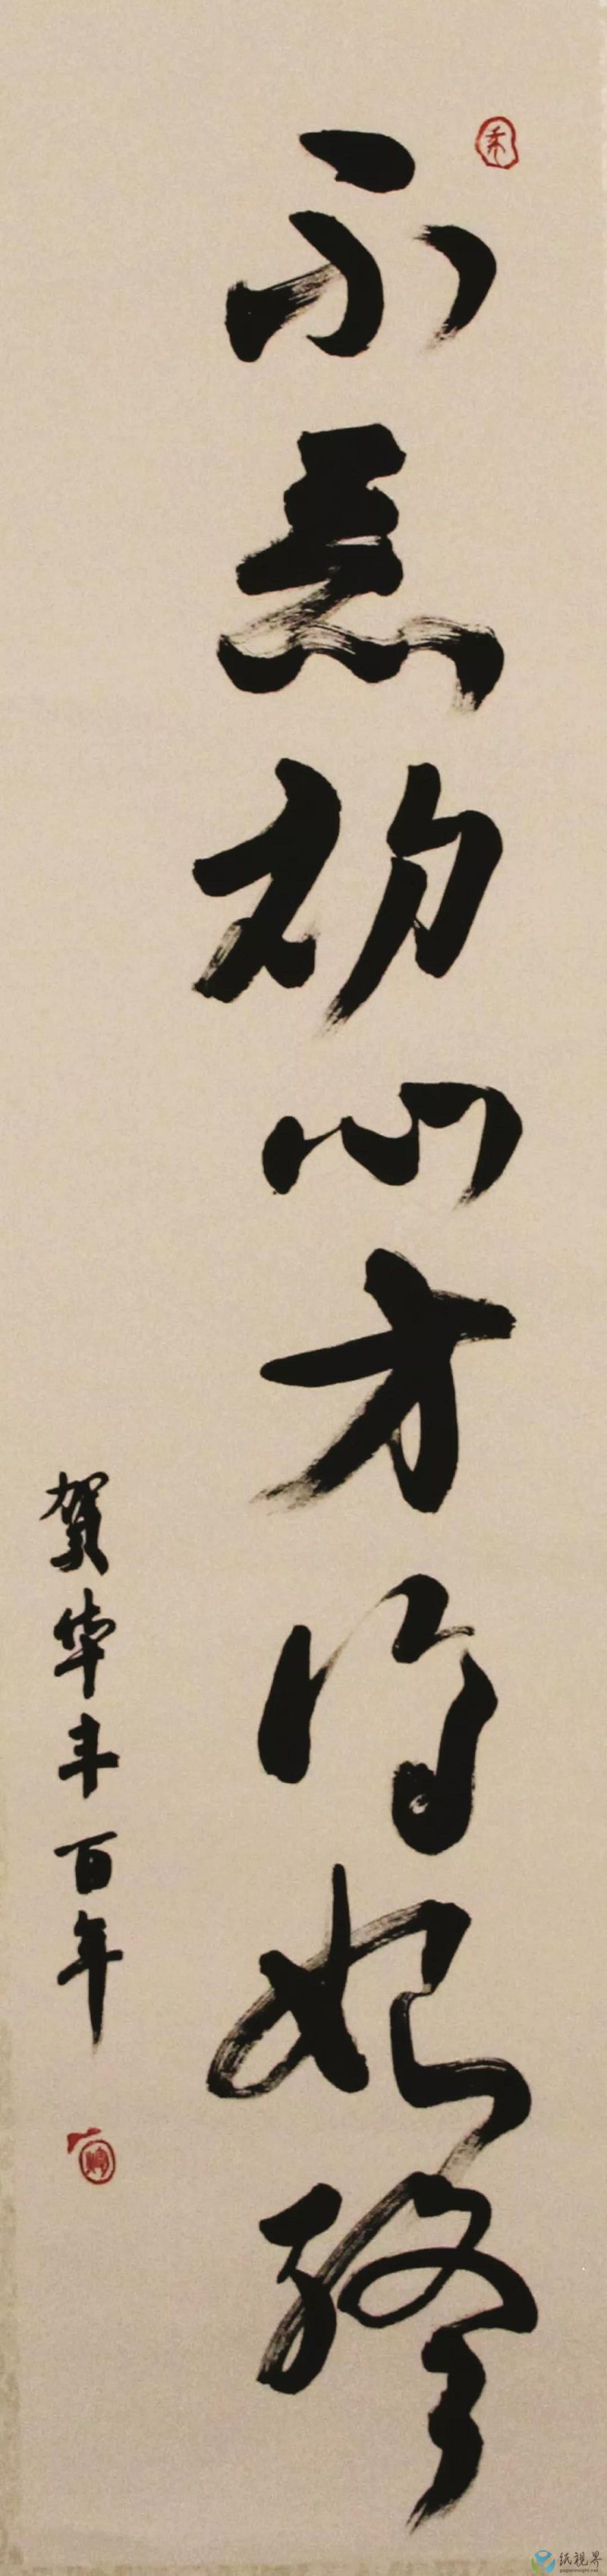 不忘初心方得始终
贺华丰百年
纸视界